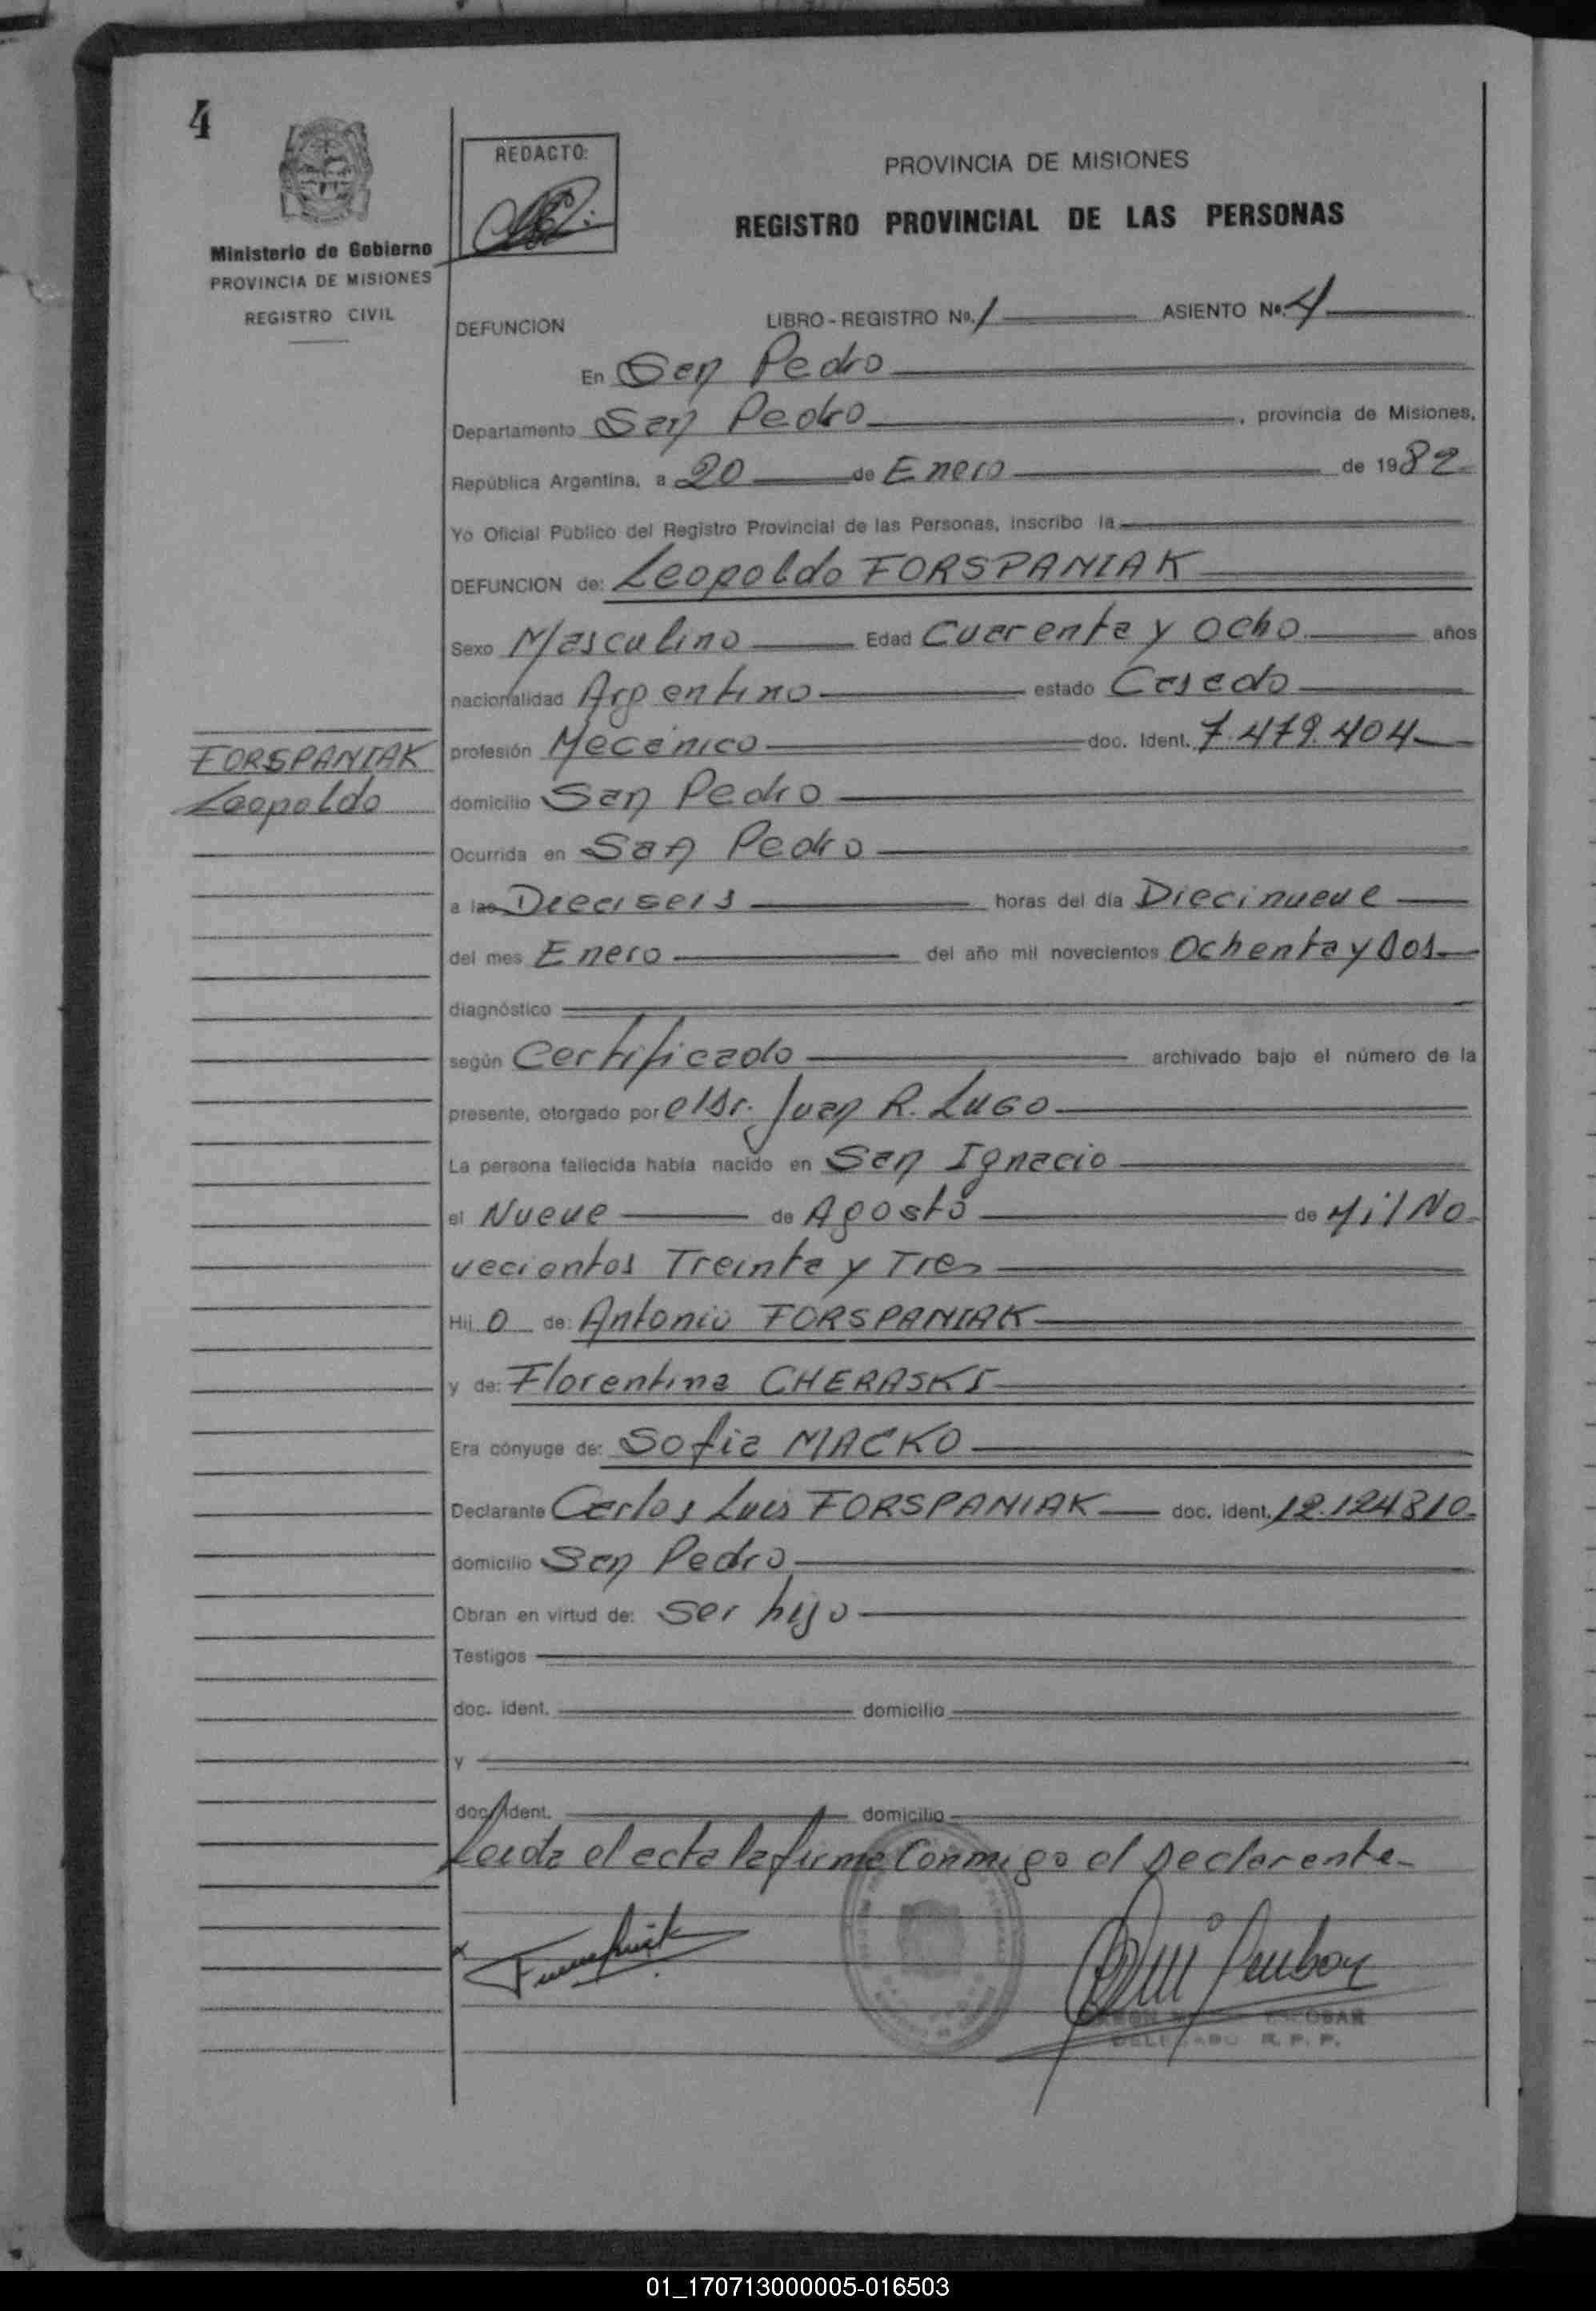 4
REDACTO:
PROVINCIA DE MISIONES
REGISTRO PROVINCIAL DE LAS PERSONAS
Ministerio de Gobierno
PROVINCIA DE MISIONES
REGISTRO CIVIL
DEFUNCION LIBRO - REGISTRO No. 1 ASIENTO No. 4
En San Pedro
Departamento San Pedro, provincia de Misiones,
República Argentina, a 20 de Enero de 1982
Yo Oficial Público del Registro Provincial de las Personas, inscribo la
DEFUNCION de: Leopoldo FORSPANIAK
Sexo Masculino Edad Cuarenta y ocho años
nacionalidad Argentino estado Casado
FORSPANIAK
Leopoldo
profesión Mecánico doc. Ident. 7.479.404
domicilio San Pedro
Ocurrida en San Pedro
a las Dieciseis horas del día Diecinueve
del mes Enero del año mil novecientos Ochenta y Dos
diagnóstico
según Certificado archivado bajo el número de la
presente, otorgado por el Dr. Juan R. LUGO
La persona fallecida había nacido en San Ignacio
el Nueve de Agosto de Mil No
vecientos Treinta y Tres
Hij o de: Antonio FORSPANIAK
y de: Florentina CHERASKI
Era cónyuge de: Sofia MACKO
Declarante Carlos Luis FORSPANIAK doc. ident. 12.124810
domicilio San Pedro
Obran en virtud de: Ser hijo
Testigos
doc. ident. domicilio
y
doc. ident. domicilio
Leida el acta la firma Conmigo el Declarante
ESCOBAR
DELEGADO R. P. P.
01_170713000005-016503